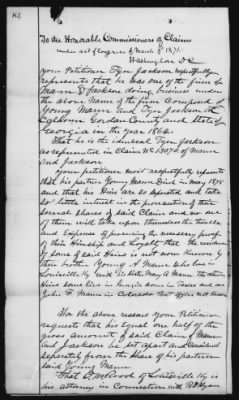 To the Honorable Commissioners of Claims
under act of Congress of March 3d 1871.
Washington D.C.
Your Petitioner Tyre Jackson respectfully
represents that he was one of the firm of
Mann & Jackson doing business under
the above Name & the firm Composed of
Young Mann and Tyre Jackson at
Calhoun Gordon County and State of
Georgia in the year 1864.
That he is the identical Tyre Jackson
as represented in Claim No 15070 of Mann
and Jackson
Your petitioner most respectfully represents
that his partner Young Mann Died in May 1875
and that his Heirs are so disputed and take
so little interest in the prosecution of their
several shares of said Claim and no one
of them will take upon themselves the trouble
and Expense of procuring the necessary proof
of their Heirship and Loyalty that the residence
of some of said Heirs is not now known by
their brother Young J Mann who lives in
Louisville Ky with his Sister Mary A Mann the other
Heirs some live in Georgia some in Texas and one
John F Mann in Colorado Post office not known
For the above reasons your Petitioner
requests that his Equal one half of the
gross amount of said Claim of Mann
and Jackson be set apart and Considered
separately from the share of his partner
said Young Mann.
That of Louisville Ky is
his attorney in Connection with